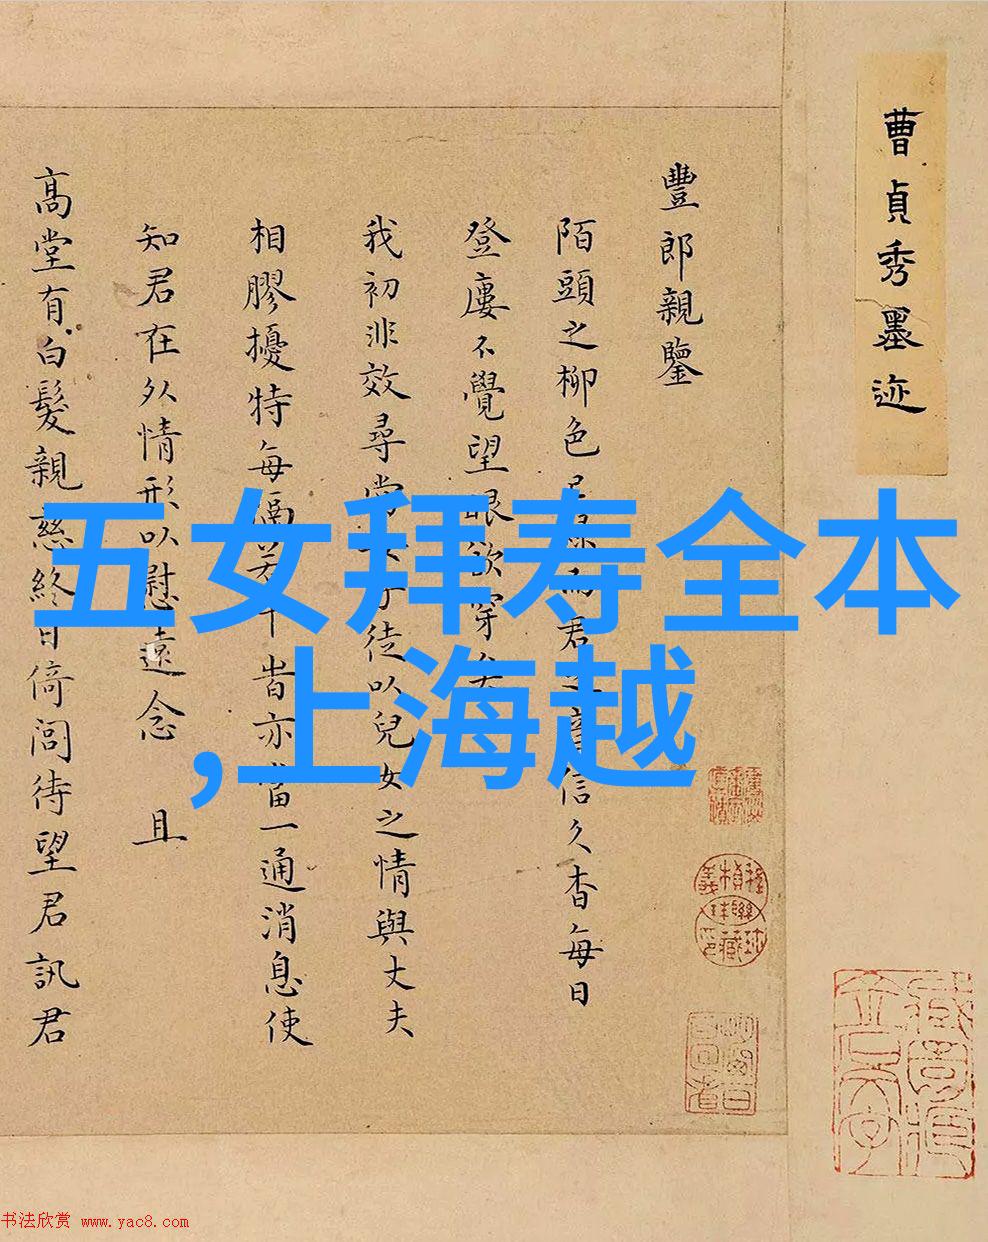 曹貞秀墨迹
豐郎親鑒
陌頭之柳色而君之音信久杳每日
登廔不覺望眼欲穿矣
我初非效尋常女子徒以兒女之情與丈夫
相膠擾特每隔若干時亦當一通消息使
知君在外情形以慰遠念 且
高堂有白髮親慈終日倚閭待望君訊君
五女拜寿全本
,上海越
书法欣赏 www.yac8.com